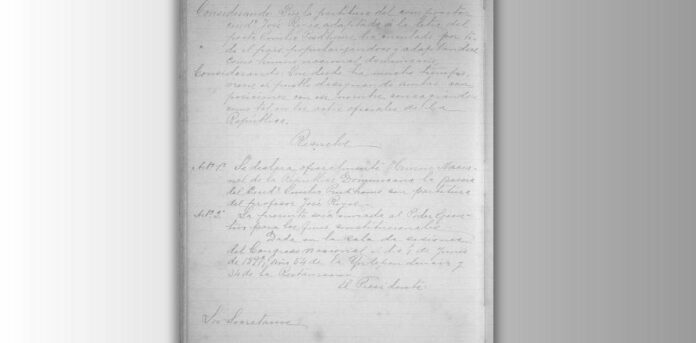 Considerando: Que la partitura del compositor
ciudº José Reyes adaptada á la letra del
poeta Emilio Prudhome, ha circulado por to-
do el pais popularizandose y adaptandose
como himno nacional dominicano.
Considerando: Que desde ha mucho tiempo,
viene el pueblo designando ambas com
posiciones con ese nombre consagrando
como tal en los actos oficiales de la
República.
Resuelve
Artº 1º Se declara oficialmente Himno Nacio-
nal de la República Dominicana la poesia
del Ciudº Emilio Prudhome con partitura
del profesor José Reyes.
Artº 2º La presente será enviada al Poder Ejecu-
tivo para los fines constitucionales.
Dada en la sala de sesiones
del Congreso Nacional á los 7 de Junio
de 1897, año 54 de la Independencia y
34 de la Restauracion
El Presidente
Los Secretarios